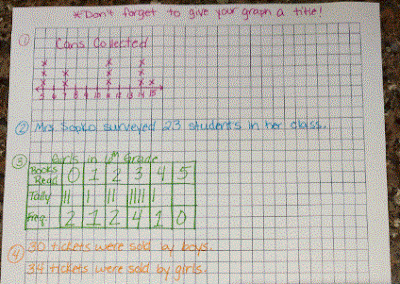 *Don't forget to give your graph a title!
① Cans Collected
② Mrs. Sabko surveyed 23 students in her class.
③ Girls in 6th Grade
Books Read 0 1 2 3 4 5
Tally || | || |||| |
Freq. 2 1 2 4 1 0
④ 30 tickets were sold by boys.
34 tickets were sold by girls.